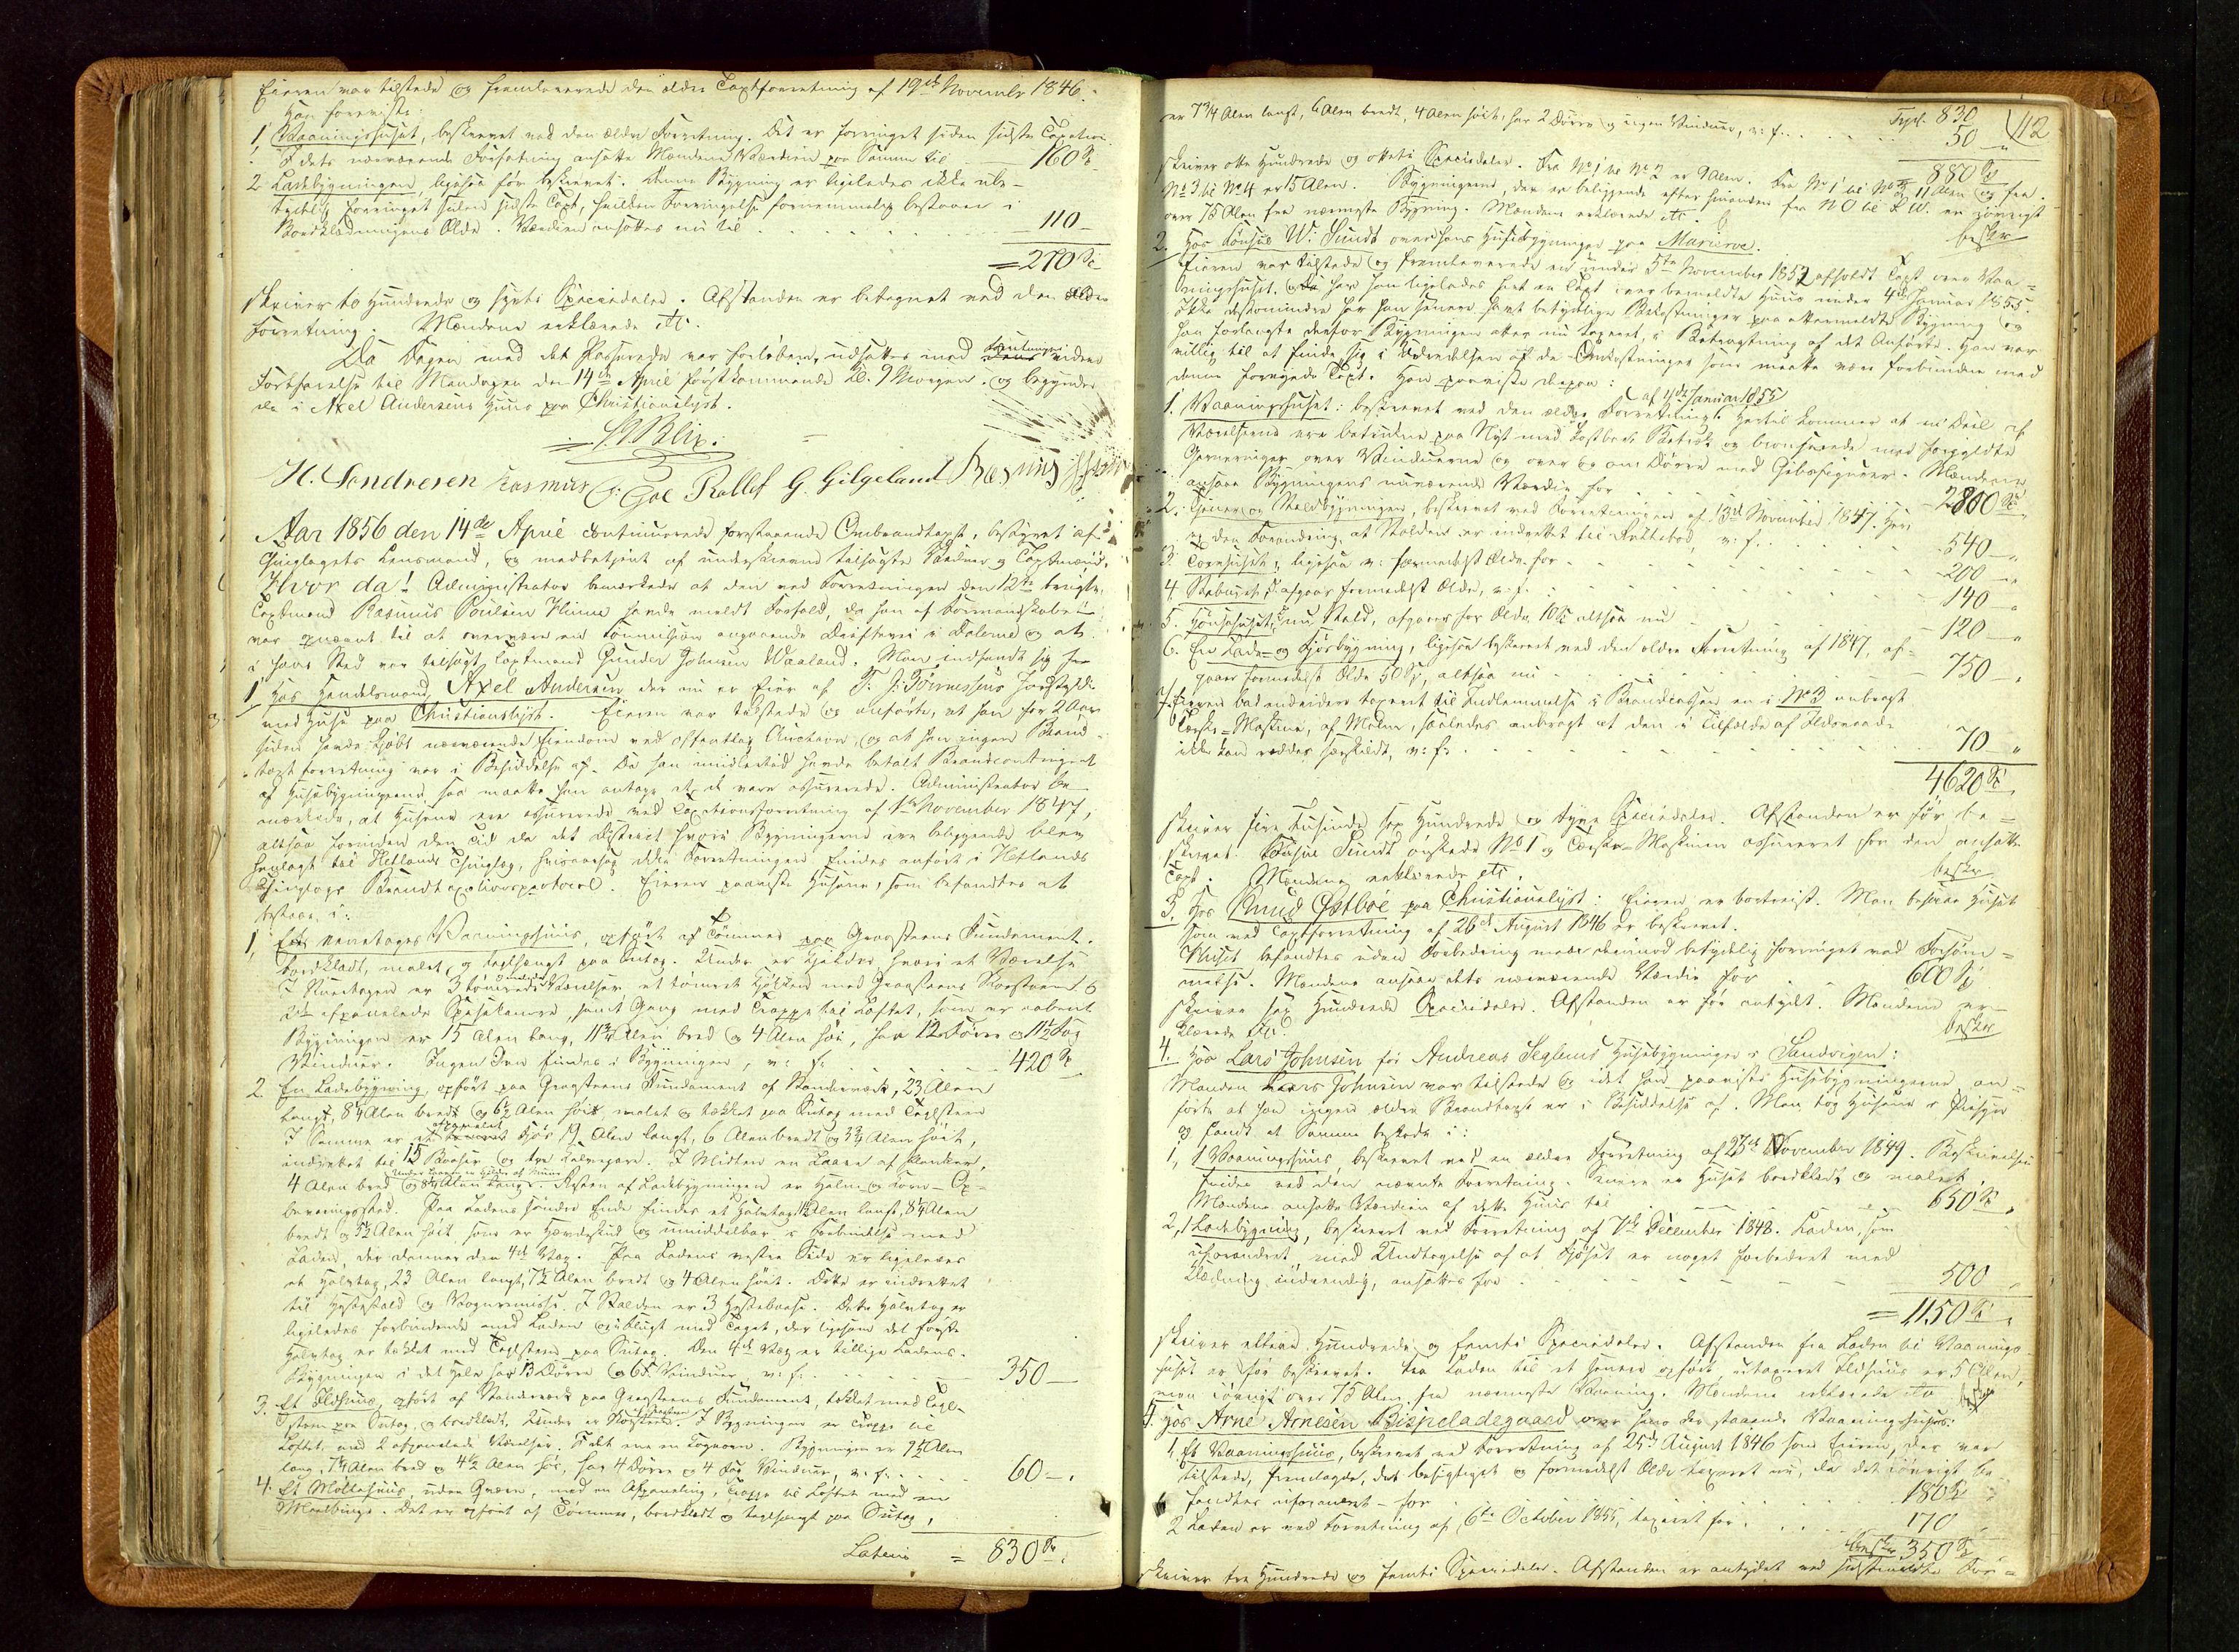 Eieren var tilstede og fremleverede den ældre Taxtforretning af 19de November 1846.
Han foreviste:
1 Vaaningshuset, beskrevet ved den ældre Forretning. Det er forringet siden sidste Taxation.
I dets nærværende Forfatning ansatte Mændene Værdien paa Samme til 160 Sp
2 Ladebygningen, ligesaa før beskrevet. Denne Bygning er ligeledes ikke ube-
tydelig forringet siden sidste Taxt, hvilken Forringelse fornemmelig bestaaer i
Bordklædningens Ælde. Værdien ansattes nu til 110 –
= 270 Sp
skriver to Hundrede og sytti Speciedaler. Afstanden er betegnet ved den ældre
Forretning. Mændene erklærede etc.
Da Dagen med det Passerede var forløben, udsattes med Forretningens videre
Fortsættelse til Mandagen den 14de April førstkommende Kl. 9 Morgen, og begyndes
da i Axel Andersens Huus paa Christianslyst.
Blix.
H. Sondresen Rasmus Goe Rollef G. Gilgeland Rasmus
Aar 1856 den 14de April continuerede forestaaende Ombrandtaxt, bestyret af
Thinglagets Lensmand, og medbetjent af underskrevne tilsagte Vidner og Taxtmænd.
Hvor da! Administrator bemærkede at den ved Forretningen den 12te brugte
Taxtmand Rasmus Poulsen Hinna havde meldt Forfald, da han af Formandskabet
var qvævnt til at overvære en Commission angaaende Driftevei i Dalerne og at
i hans Sted var tilsagt Taxtmand Gunder Johnsen Waaland. Man indfandt sig saa
1 Hos Handelsmand Axel Andersen der nu er Eier af T. J. Tønnessens Jordstykke
med Huse paa Christianslyst. Eieren var tilstede og anførte, at han for 2 Aar
siden havde kjøbt nærværende Eiendom ved offentlig Auction, og at han ingen Brand-
taxtforretning var i Besiddelse af. Da han imidlertid havde betalt Brandcontingent
af Husebygningerne, saa maatte han antage at de vare assurerede. Administrator be-
mærkede, at Husene ere assurerede ved Taxationsforretning af 1te November 1847,
altsaa forinden den Tid da det District hvori Bygningerne ere beliggende blev
henlagt til Hetlands Thinglag, hvisaarsag ikke Forretningen findes anført i Hetlands
Thinglags Brandtaxationsprotocol. Eieren paaviste Husene, som befandtes at
bestaae i:
1, Et eenetages Vaaningshuus, opført af Tømmer paa Graasteens Fundament.
bordklædt, malet, og teglhængt paa Sutag. Under er Kjelder hvori et Værelse
I Stueetagen er 3 tømrede Værelser et tømret Kjøkken med Graasteens Skorsteen
et afpanelede Spisekammer, samt Gang med Trappe til Loftet, som er aabent
Bygningen er 15 Alen lang, 11 3/4 Alen bred og 4 Alen høi, har 12 Dørre og 11 1/2 Fag
Vinduer. Ingen Ovn findes i Bygningen, v: f: 420 Sp
2. En Ladebygning, opført paa Graasteens Fundament af Standerværk, 23 Alen
langt, 8 1/4 Alen bredt og 6 1/2 Alen høit, malet og tækket paa Sutag med Teglsteen
I Samme er et afpanelet Fjøs 19 Alen langt, 6 Alen bredt og 3 3/4 Alen høit,
indrettet til 15 Baaser og tre Kalvegare. I Midten en Laave af Planker,
4 Alen bred og 8 1/4 Alen lang. Resten af Ladebygningen er Halm- og Korn- Op-
bevaringssted. Paa Ladens søndre Ende findes et Halvtag 11 Alen langt, 8 1/4 Alen
bredt og 3 1/2 Alen høit, som er Torvskuud og umiddelbar i Forbindelse med
Laden, der danner den 4de Væg. Paa Ladens vestre Side er ligeledes
et Halvtag, 23 Alen langt, 7 1/2 Alen bredt og 4 Alen høit. Dette er indrettet
til Hestestald og Vognremisse. I Stalden er 3 Hestebaase. Dette Halvtag er
ligeledes forbindende med Laden og tillagt med Taget, der ligesom det første
Halvtag er tækket med Teglsteen paa Sutag. Den 4de Væg er tillige Ladens.
Bygningen i det Hele har 13 Dørre og 6 Fag Vinduer v: f: 350 –
3. Et Ildhuus, opført af Standerværk paa Graasteens Fundament, tækket med Tegl-
steen paa Sutag, og bordklædt. Under er Skorsteen. I Bygningen er Trappe til
Loftet, med 2 afpanelede Værelser. I det ene en Kogeovn. Bygningen er 9 1/2 Alen
lang, 7 1/4 Alen bred og 4 1/2 Alen høi, har 4 Dørre og 4 Fag Vinduer, v: f: 60 –
4. Et Møllehuus, uden Qværn, med en Afpaneling, Trappe til Loftet med en
Meelbinge. Det er opført af Tømmer, bordklædt og teglhængt paa Sutag,
Lateris = 830 Sp
112
Transp. 830
er 7 3/4 Alen langt, 6 Alen bredt, 4 Alen høit, har 2 Dørre og ingen Vinduer, v: f: 50 –
880 Sp
skriver otte Hundrede og otteti Speciedaler. Fra No 1 til No 2 er 9 Alen. Fra No 1 til No 3 11 Alen og fra
No 3 til No 4 er 15 Alen. Bygningerne, der er beliggende efter hinanden fra NO til S.W. er iøvrigt
over 75 Alen fra nærmeste Bygning. Mændene erklærede etc.
beskr
2. Hos Consul W. Sundt over hans Husebygninger paa Marieroe.
Eieren var tilstede og fremleverede en under 5te November 1852 afholdt Taxt over Vaa-
ningshuset, og da har han ligeledes havt en Taxt over bemeldte Huus under 4de Januar 1855.
Ikke destomindre har han senere havt betydelige Bekostninger paa ettermeldte Bygning og
han forlangte derfor Bygningen atter nu taxeret, i Betragtning af det Anførte. Han var
villig til at finde sig i Udredelsen af de Omkostninger som maatte være forbundne med
denne fornyede Taxt. Han paaviste derpaa:
af 4de Januar 1855
1. Vaaningshuset: beskrevet ved den ældre Forretning. Hertil kommer at en Deel af
Værelserne ere betrukne paa Nyt med kostbart Betræk og bronserede med forgyldte
Garneringer over Vinduerne og over og om Dørre med Gibsfigurer. Mændene
ansaae Bygningens nuværende Værdie for 2800 Sp
2. Fjøs- og Staldbygningen, beskrevet ved Forretningen af 13de November 1847. Her
er den Forandring, at Stalden er indrettet til Røttebod, v: f: 540 –
3. Tærshuset, ligesaa v: formedelst Ælde for 200 –
4 Stabuset, afgaar formedelst Ælde, v: f: 140 –
5. Hønsehuset, nu Stald, afgaaer for Ælde 10 Sp altsaa nu 120 –
6. En Lade- og Fjøsbygning, ligesaa beskrevet ved den ældre Forretning af 1847, af-
gaaer formedelst Ælde 50 Sp, altsaa nu 750 –
7. Eieren bad endvidere taxeret til Indlemmelse i Brandcassen en i No 3 anbragt
Tærske-Maskine, af Malm, saaledes anbragt at den i Tilfælde af Ildsvaade
ikke kan reddes særskildt, v: f: 70 "
4620 Sp
skriver fire Tusinde sex Hundrede og tyve Speciedaler. Afstanden er før be-
skrevet. Consul Sundt ønskede No 1 og Tærske-Maskinen assureret for den ansatte
Taxt. Mændene erklærede etc.
beskr
3. Hos Knud Østbøe paa Christianslyst: Eieren er bortreist. Man besaae Huset
som ved Taxtforretning af 26de August 1846 er beskrevet.
Huset befandtes uden Forbedring men derimod betydelig forringet ved Forsøm-
melse. Mændene ansaae dets nærværende Værdie for 600 Sp
skriver sex Hundrede Speciedaler. Afstanden er før antydet. Mændene er-
klærede etc.
beskr
4. Hos Lars Johnsen før Andreas Seglems Husebygninger i Sandvigen:
Manden Lars Johnsen var tilstede og idet han paaviste Husebygningerne an-
førte at han ingen ældre Brandtaxt er i Besiddelse af. Man tog Husene i Øiesyn
og fandt at Samme bestode i:
1, 1 Vaaningshuus, beskrevet ved en ældre Forretning af 23de November 1849. Beskrivelsen
findes ved den nævnte Forretning. Senere er Huset bordklædt og malet.
Mændene ansatte Værdien af dette Huus til 650 Sp
2, 1 Ladebygning, beskrevet ved Forretning af 7de December 1848. Laden, som
uforandret, med Undtagelse af at Fjøset er noget forbedret med
Klædning indvendig, ansattes for 500
= 1150 Sp
skriver elleve Hundrede og femti Speciedaler. Afstanden fra Laden til Vaanings-
huset er før beskrevet. Fra Laden til et senere opført utaxeret Ildhuus er 5 Alen,
men iøvrigt over 75 Alen fra nærmeste Vaaning. Mændene erklærede etc
beskr
5. Hos Arne Arnesen Bispeladegaard over hans der staaende Vaaningshuse:
1. Et Vaaningshuus, beskrevet ved Forretning af 25de August 1846 som Eieren, der var
tilstede, fremlagde, det besigtiget og formedelst Ælde taxeret nu, da det iøvrigt be-
fandtes uforandret – for 180 Sp
2 Laden er ved Forretning af 6te October 1855, taxeret for 170
beskr 350 Sp
skriver tre Hundrede og femti Speciedaler. Afstanden er antydet ved sidstmeldte For-